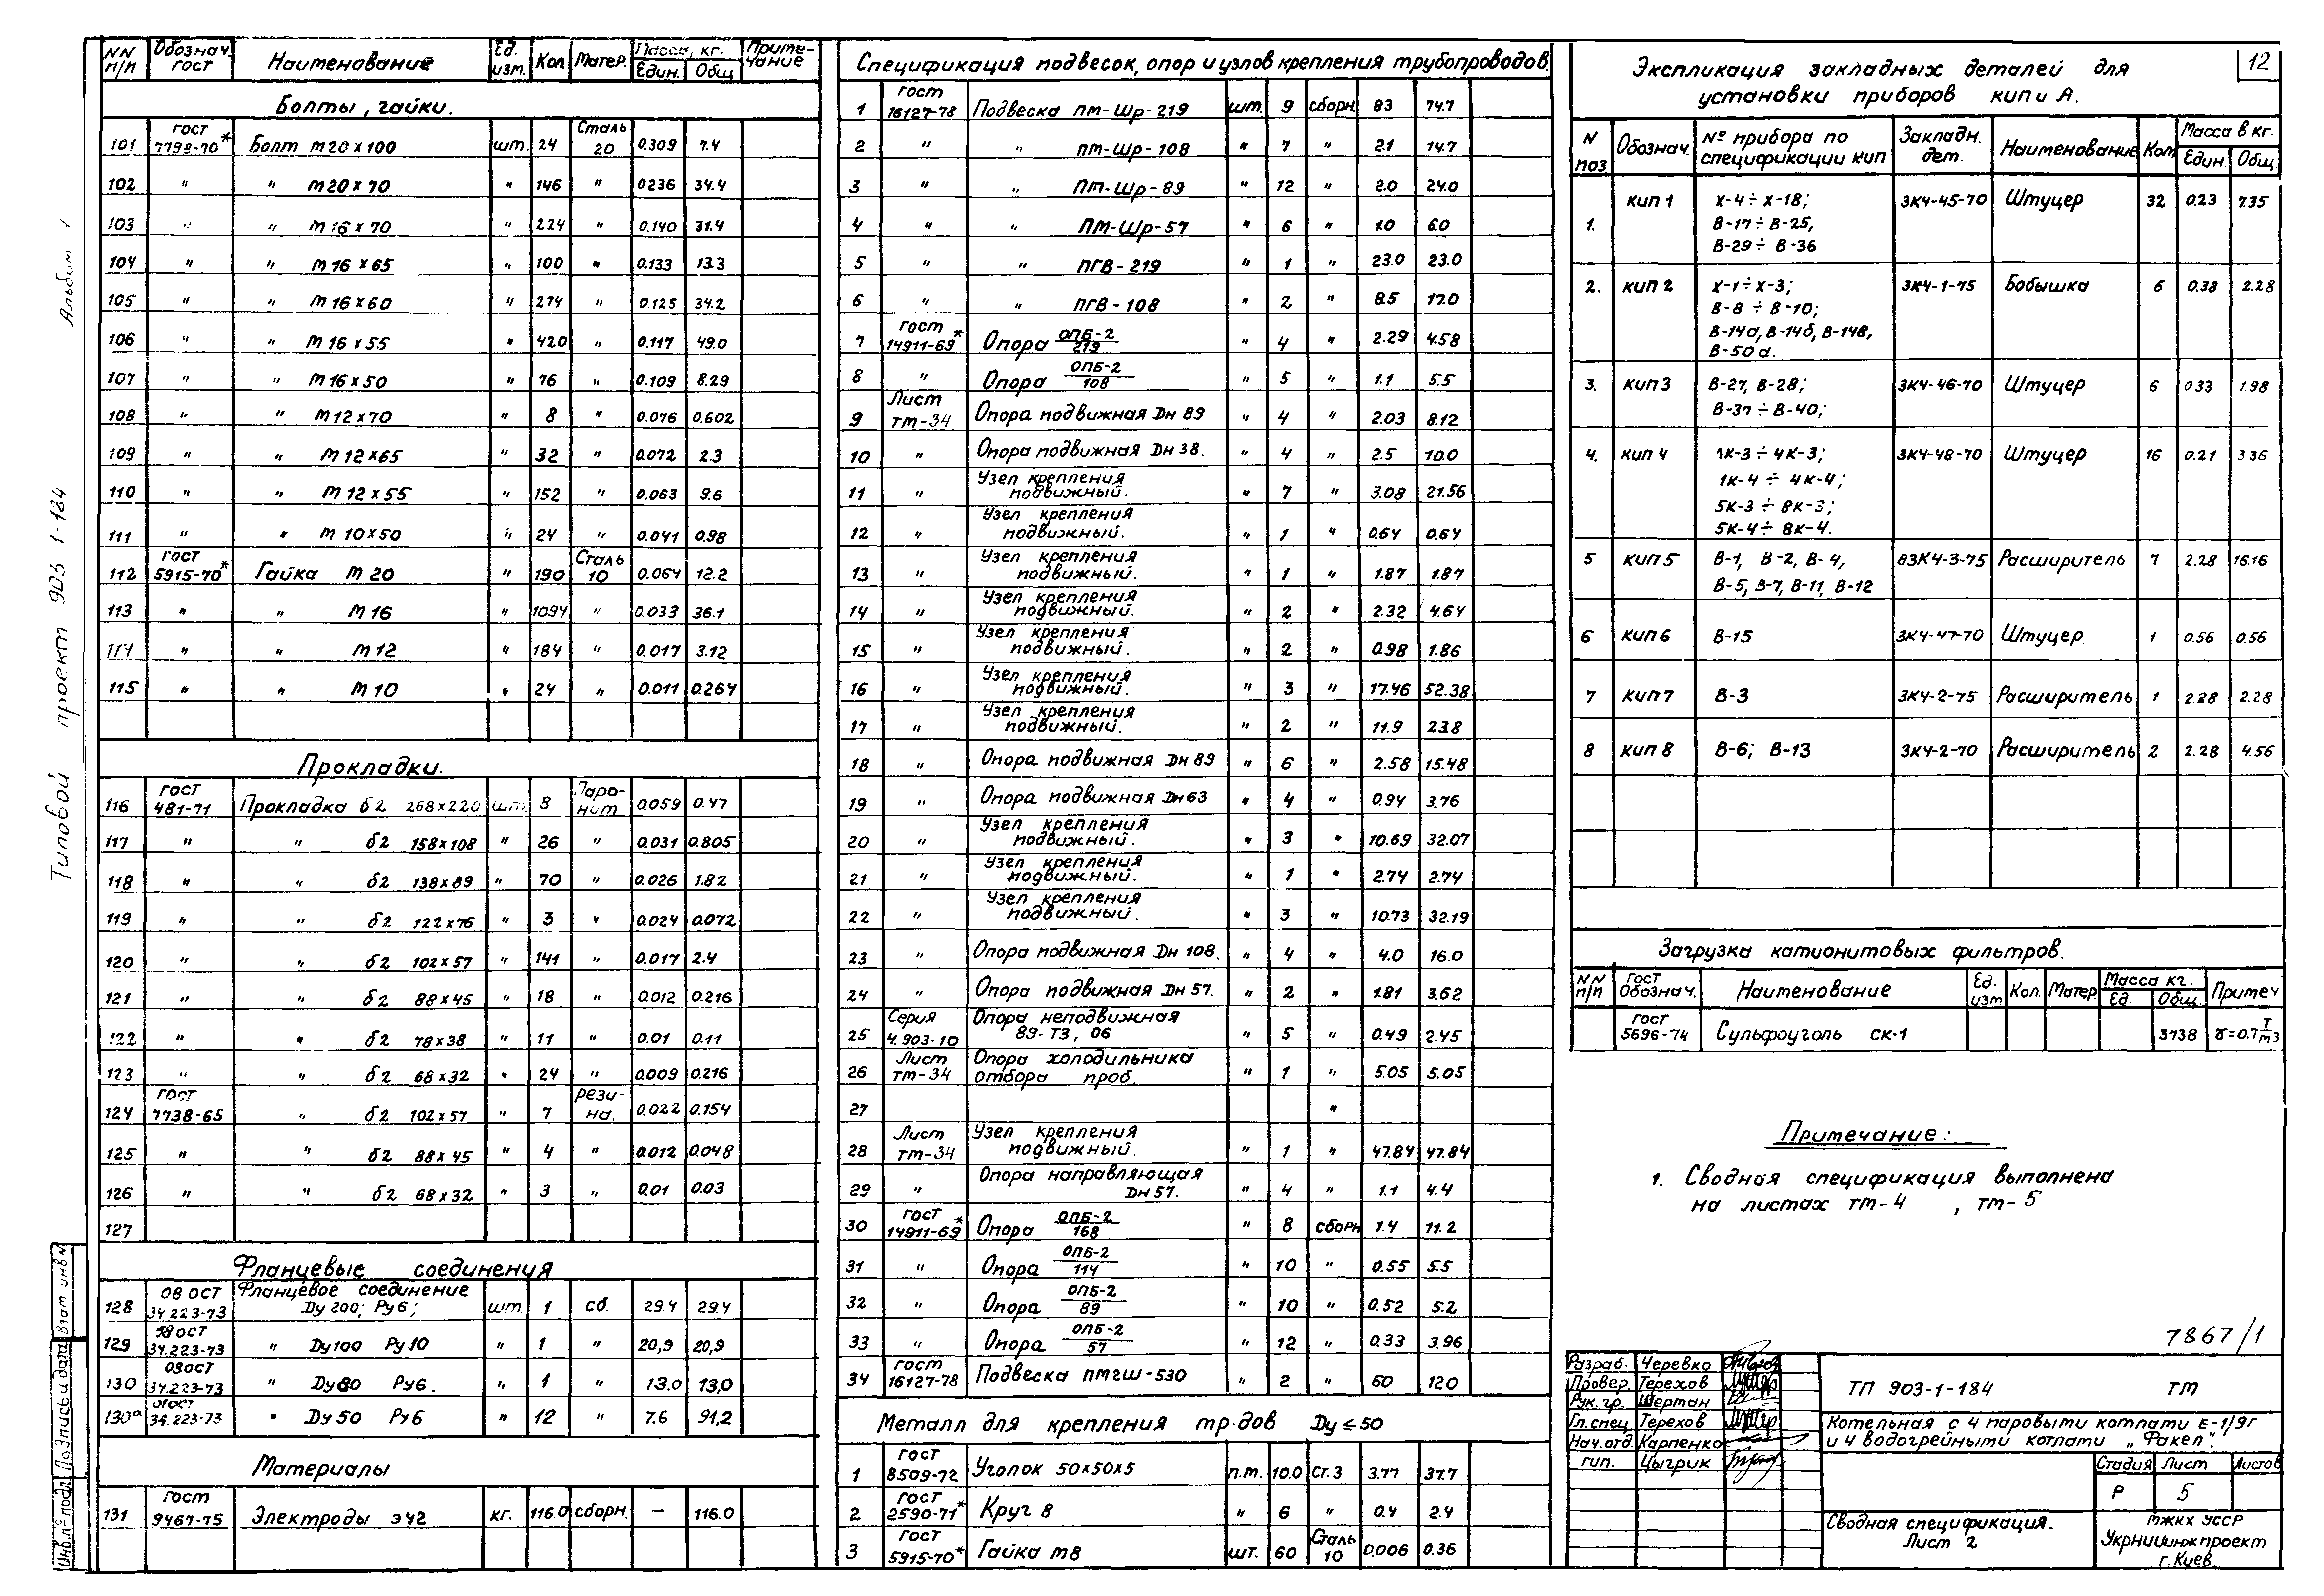 Альбом 1
Типовой проект 903-1-184
12
NN п/п Обознач. гост Наименование Ед. изм. Кол Матер. Масса, кг. Един. Общ Примечание
Болты, гайки.
101 гост 7798-70* Болт М20х100 шт. 24 Сталь 20 0.309 7.4
102 " " М20х70 " 146 " 0236 34.4
103 " " М16х70 " 224 " 0.140 31.4
104 " " М16х65 " 100 " 0.133 13.3
105 " " М16х60 " 274 " 0.125 34.2
106 " " М16х55 " 420 " 0.117 49.0
107 " " М16х50 " 76 " 0.109 8.29
108 " " М12х70 " 8 " 0.076 0.602
109 " " М12х65 " 32 " 0.072 2.3
110 " " М12х55 " 152 " 0.063 9.6
111 " " М10х50 " 24 " 0.041 0.98
112 гост 5915-70* Гайка М20 " 190 Сталь 10 0.064 12.2
113 " " М16 " 1094 " 0.033 36.1
114 " " М12 " 184 " 0.017 3.12
115 " " М10 " 24 " 0.011 0.264
Прокладки.
116 гост 481-71 Прокладка δ2 268х220 шт. 8 Паронит 0.059 0.47
117 " " δ2 158х108 " 26 " 0.031 0.805
118 " " δ2 138х89 " 70 " 0.026 1.82
119 " " δ2 122х76 " 3 " 0.024 0.072
120 " " δ2 102х57 " 141 " 0.017 2.4
121 " " δ2 88х45 " 18 " 0.012 0.216
122 " " δ2 78х38 " 11 " 0.01 0.11
123 " " δ2 68х32 " 24 " 0.009 0.216
124 гост 7738-65 " δ2 102х57 " 7 резина. 0.022 0.154
125 " " δ2 88х45 " 4 " 0.012 0.048
126 " " δ2 68х32 " 3 " 0.01 0.03
127
Фланцевые соединения
128 08 ОСТ 34.223-73 Фланцевое соединение Dу 200; Ру6; шт 1 сб. 29.4 29.4
129 58 ОСТ 34.223-73 " Dу100 Ру10 " 1 " 20,9 20,9
130 03ОСТ 34.223-73 " Dу80 Ру6. " 1 " 13.0 13,0
130а 01ОСТ 34.223-73 " Dу50 Ру6 " 12 " 7.6 91,2
Материалы
131 гост 9467-75 Электроды э42 кг. 116.0 сборн. — 116.0
Спецификация подвесок, опор и узлов крепления трубопроводов.
1 гост 16127-78 Подвеска ПМ-Шр-219 шт. 9 сборн 83 74.7
2 " " ПМ-Шр-108 " 7 " 2.1 14.7
3 " " ПМ-Шр-89 " 12 " 2.0 24.0
4 " " ПМ-Шр-57 " 6 " 1.0 6.0
5 " " ПГВ-219 " 1 " 23.0 23.0
6 " " ПГВ-108 " 2 " 8.5 17.0
7 гост 14911-69* Опора ОПБ-2/219 " 4 " 2.29 4.58
8 " Опора ОПБ-2/108 " 5 " 1.1 5.5
9 Лист ТМ-34 Опора подвижная Dн 89 " 4 " 2.03 8.12
10 " Опора подвижная Dн 38. " 4 " 2.5 10.0
11 " Узел крепления подвижный. " 7 " 3.08 21.56
12 " Узел крепления подвижный. " 1 " 0.64 0.64
13 " Узел крепления подвижный. " 1 " 1.87 1.87
14 " Узел крепления подвижный. " 2 " 2.32 4.64
15 " Узел крепления подвижный. " 2 " 0.98 1.86
16 " Узел крепления подвижный. " 3 " 17.46 52.38
17 " Узел крепления подвижный. " 2 " 11.9 23.8
18 " Опора подвижная Dн 89 " 6 " 2.58 15.48
19 " Опора подвижная Dн 63 " 4 " 0.94 3.76
20 " Узел крепления подвижный. " 3 " 10.69 32.07
21 " Узел крепления подвижный. " 1 " 2.74 2.74
22 " Узел крепления подвижный. " 3 " 10.73 32.19
23 " Опора подвижная Dн 108. " 4 " 4.0 16.0
24 " Опора подвижная Dн 57. " 2 " 1.81 3.62
25 Серия 4.903-10 Опора неподвижная 89-Т3, 06 " 5 " 0.49 2.45
26 Лист ТМ-34 Опора холодильника отбора проб. " 1 " 5.05 5.05
27 "
28 Лист ТМ-34 Узел крепления подвижный. " 1 " 47.84 47.84
29 " Опора направляющая Dн 57. " 4 " 1.1 4.4
30 гост 14911-69* Опора ОПБ-2/168 " 8 сборн 1.4 11.2
31 " Опора ОПБ-2/114 " 10 " 0.55 5.5
32 " Опора ОПБ-2/89 " 10 " 0.52 5.2
33 " Опора ОПБ-2/57 " 12 " 0.33 3.96
34 гост 16127-78 Подвеска ПМгШ-530 " 2 " 60 120
Металл для крепления тр-дов Dу ≤ 50
1 гост 8509-72 Уголок 50х50х5 п.м. 10.0 Ст.3 3.77 37.7
2 гост 2590-71* Круг 8 " 6 " 0.4 2.4
3 гост 5915-70* Гайка М8 шт. 60 Сталь 10 0.006 0.36
Экспликация закладных деталей для
установки приборов КИП и А.
N поз Обознач. № прибора по спецификации КИП Закладн. дет. Наименование Кол Масса в кг. Един. Общ.
1. КИП 1 Х-4÷Х-18; В-17÷В-25, В-29÷В-36 ЗК4-45-70 Штуцер 32 0.23 7.35
2. КИП 2 Х-1÷Х-3; В-8÷В-10; В-14а, В-14б, В-14в, В-50а. ЗК4-1-75 Бобышка 6 0.38 2.28
3. КИП 3 В-27, В-28; В-37÷В-40; ЗК4-46-70 Штуцер 6 0.33 1.98
4. КИП 4 1К-3÷4К-3; 1К-4÷4К-4; 5К-3÷8К-3; 5К-4÷8К-4. ЗК4-48-70 Штуцер 16 0.21 3 36
5 КИП 5 В-1, В-2, В-4, В-5, В-7, В-11, В-12 83К4-3-75 Расширитель 7 2.28 16.16
6 КИП 6 В-15 ЗК4-47-70 Штуцер. 1 0.56 0.56
7 КИП 7 В-3 ЗК4-2-75 Расширитель 1 2.28 2.28
8 КИП 8 В-6; В-13 ЗК4-2-70 Расширитель 2 2.28 4.56
Загрузка катионитовых фильтров.
NN п/п ГОСТ Обознач. Наименование Ед. изм Кол. Матер. Масса кг. Ед. Общ. Примеч
гост 5696-74 Сульфоуголь СК-1 3738 γ=0.7 т/м3
Примечание:
1. Сводная спецификация выполнена
на листах ТМ-4 , ТМ-5
7867/1
Разраб. Черевко
Провер. Терехов
Рук. гр. Шертан
Гл. спец Терехов
Нач. отд. Карпенко
ГИП. Цыгрик
ТП 903-1-184 ТМ
Котельная с 4 паровыми котлами Е-1/9г
и 4 водогрейными котлами „Факел".
Стадия Лист Листов
Р 5
Сводная спецификация.
Лист 2
МЖКХ УССР
Укрниинжпроект
г. Киев.
Взам инв N
Подпись и дата
Инв. № подл